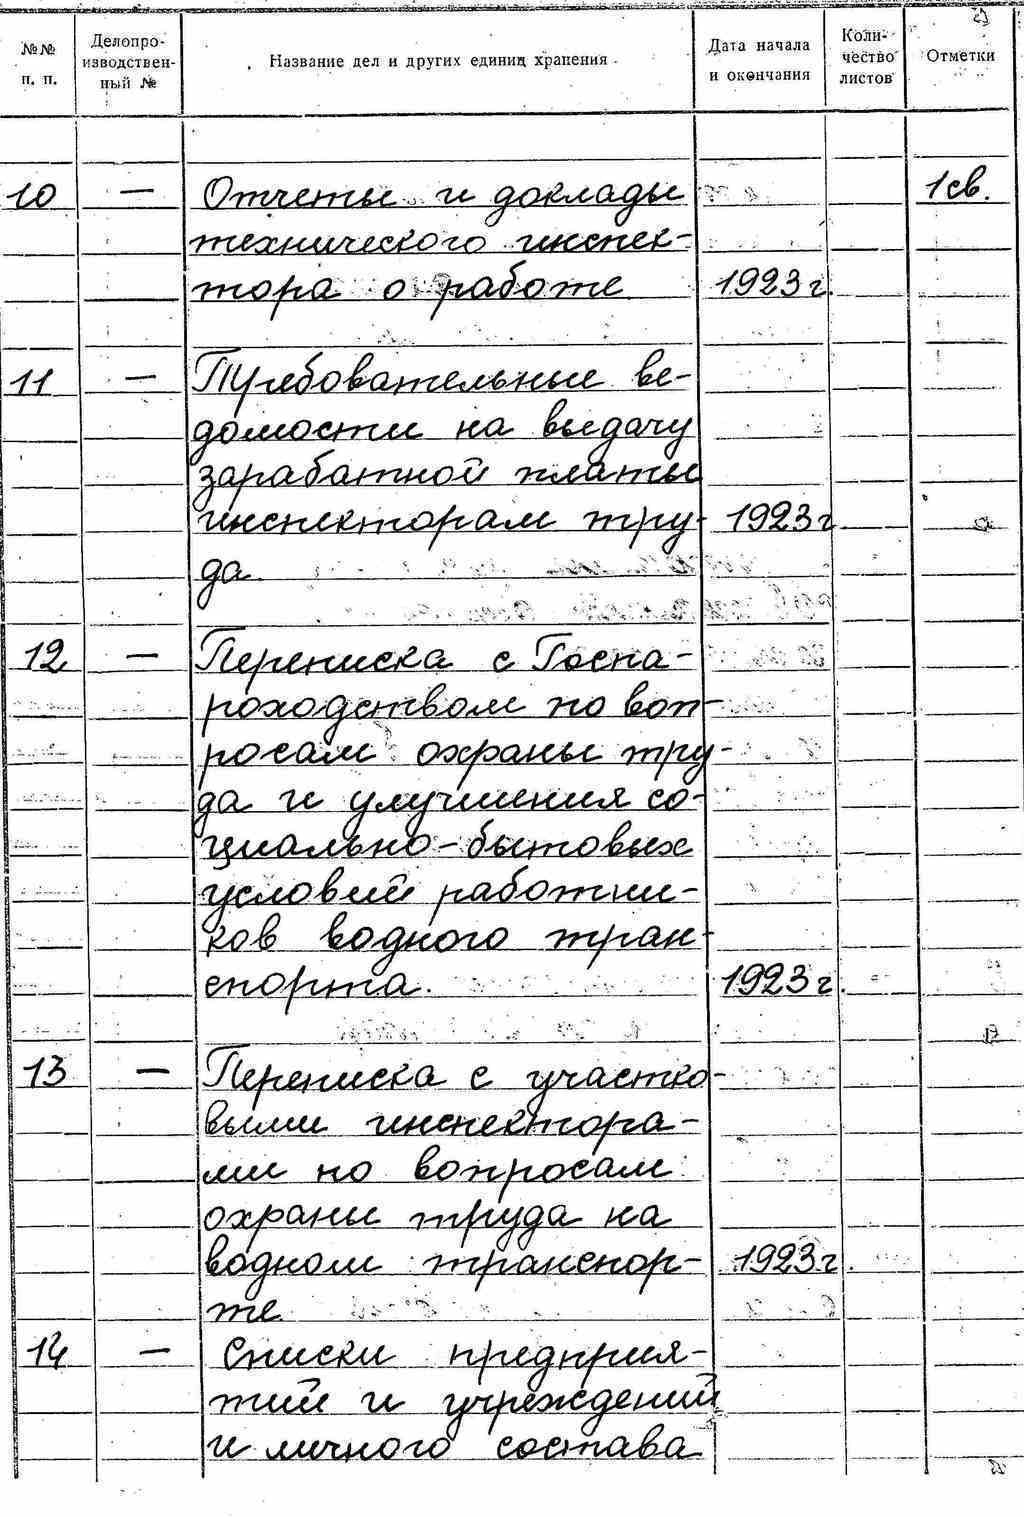 №№ п. п.
Делопро-
изводствен-
ный №
Название дел и других единиц хранения
Дата начала
и окончания
Коли-
чество
листов
Отметки
10 — Отчеты и доклады 1 св.
технического инспек-
тора о работе 1923 г.
11 — Требовательные ве-
домости на выдачу
заработной платы
инспекторам тру- 1923 г
да.
12 — Переписка с Госпа-
роходством по воп-
росам охраны тру-
да и улучшения со-
циально-бытовых
условий работни-
ков водного тран-
спорта. 1923 г.
13 — Переписка с участко-
выми инспектора-
ми по вопросам
охраны труда на
водном транспор- 1923 г.
те.
14 — Списки предприя-
тий и учреждений
и личного состава